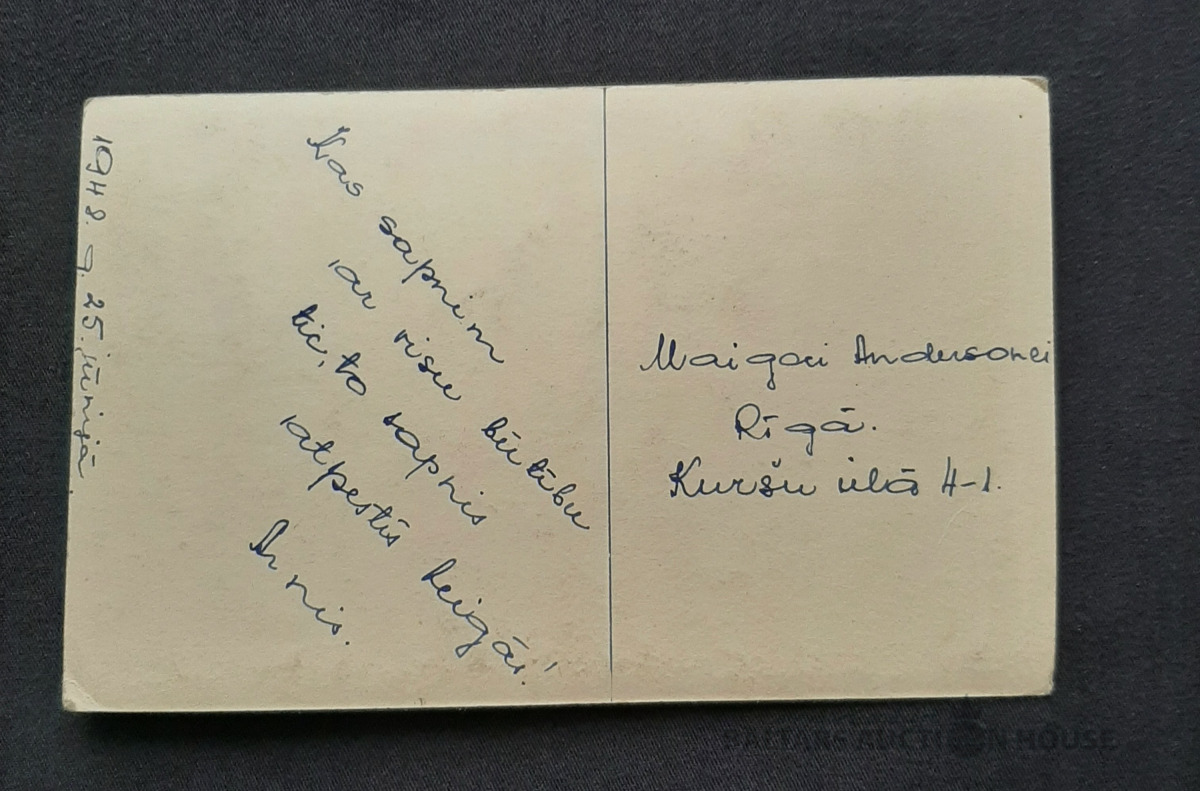 1948. g. 25. jūnijā.
Kas sapņiem
ar visu būtību
tic, to sapnis
atpestīs beigās!
Arnis.
Maigai Andersonei
Rīgā.
Kuršu ielā 4-1.
BALTARS AUCTION HOUSE